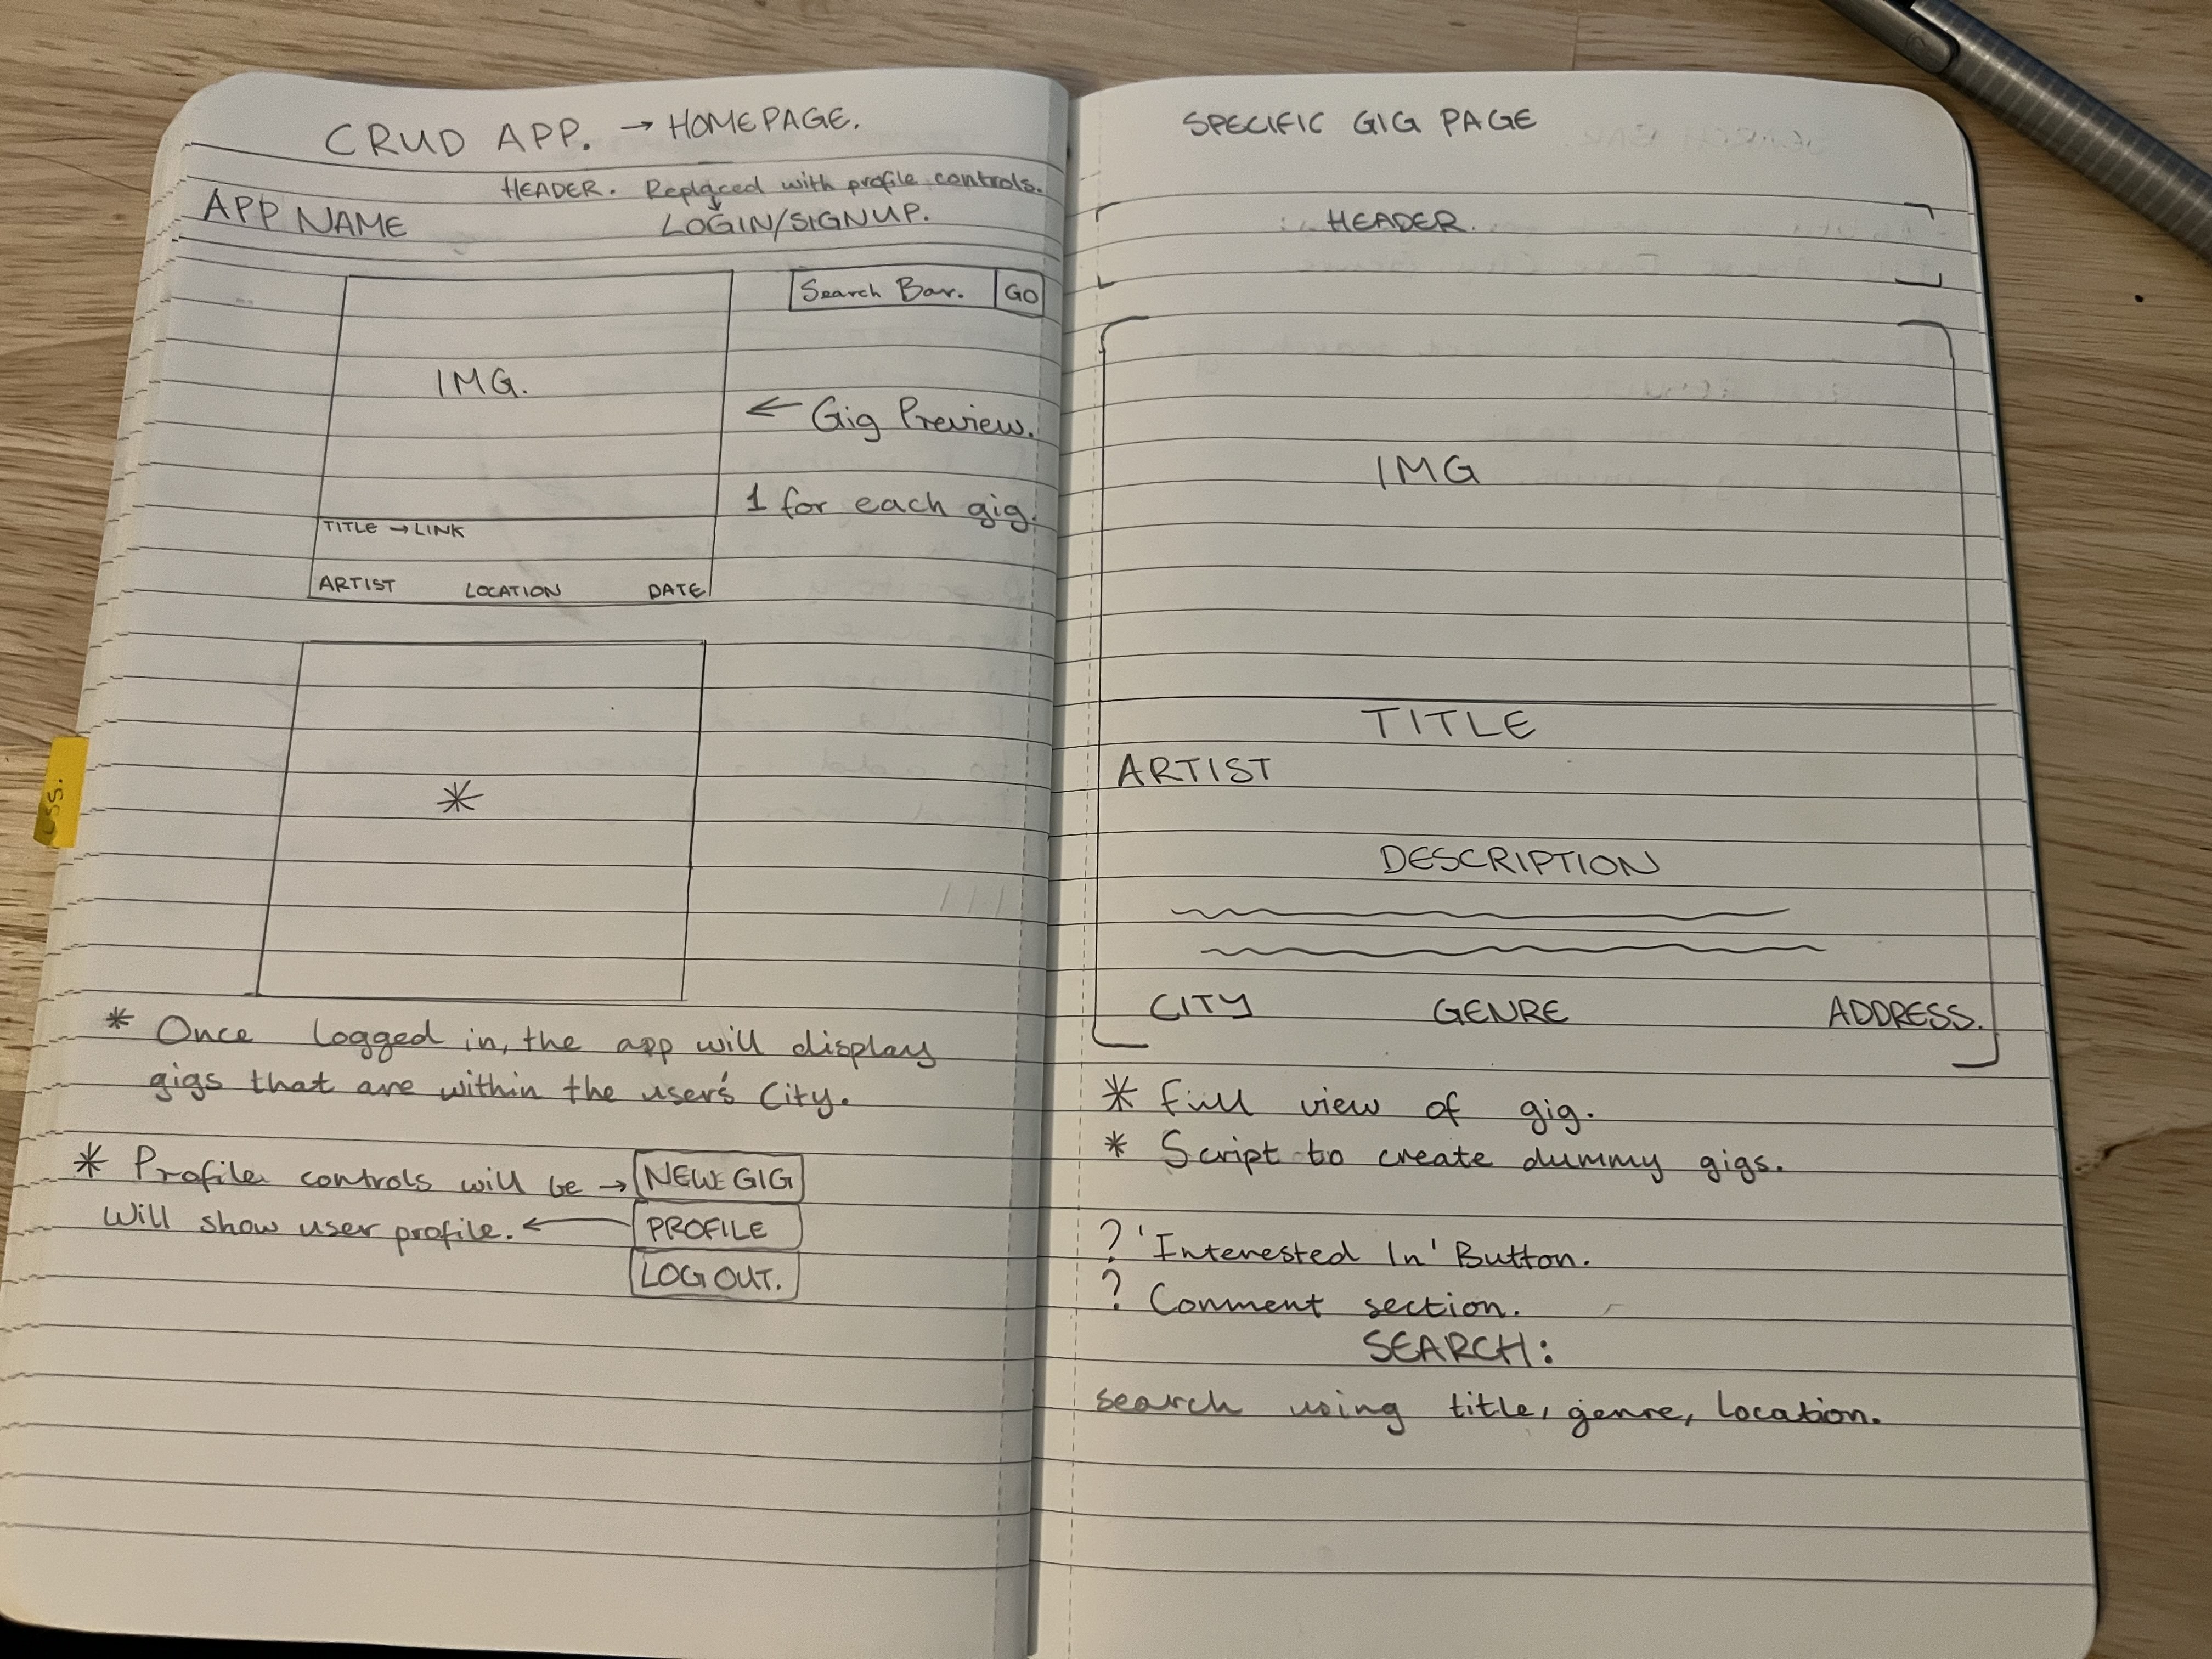 CRUD APP. → HOMEPAGE.
HEADER. Replaced with profile controls.
APP NAME LOGIN/SIGNUP.
Search Bar. GO
IMG.
← Gig Preview.
1 for each gig.
TITLE → LINK
ARTIST LOCATION DATE
*
* Once logged in, the app will display
gigs that are within the user's City.
* Profile controls will be → NEW GIG
will show user profile. ← PROFILE
LOG OUT.
css.
SPECIFIC GIG PAGE
HEADER.
IMG
TITLE
ARTIST
DESCRIPTION
CITY GENRE ADDRESS.
* Full view of gig.
* Script to create dummy gigs.
? 'Interested In' Button.
? Comment section.
SEARCH:
search using title, genre, location.